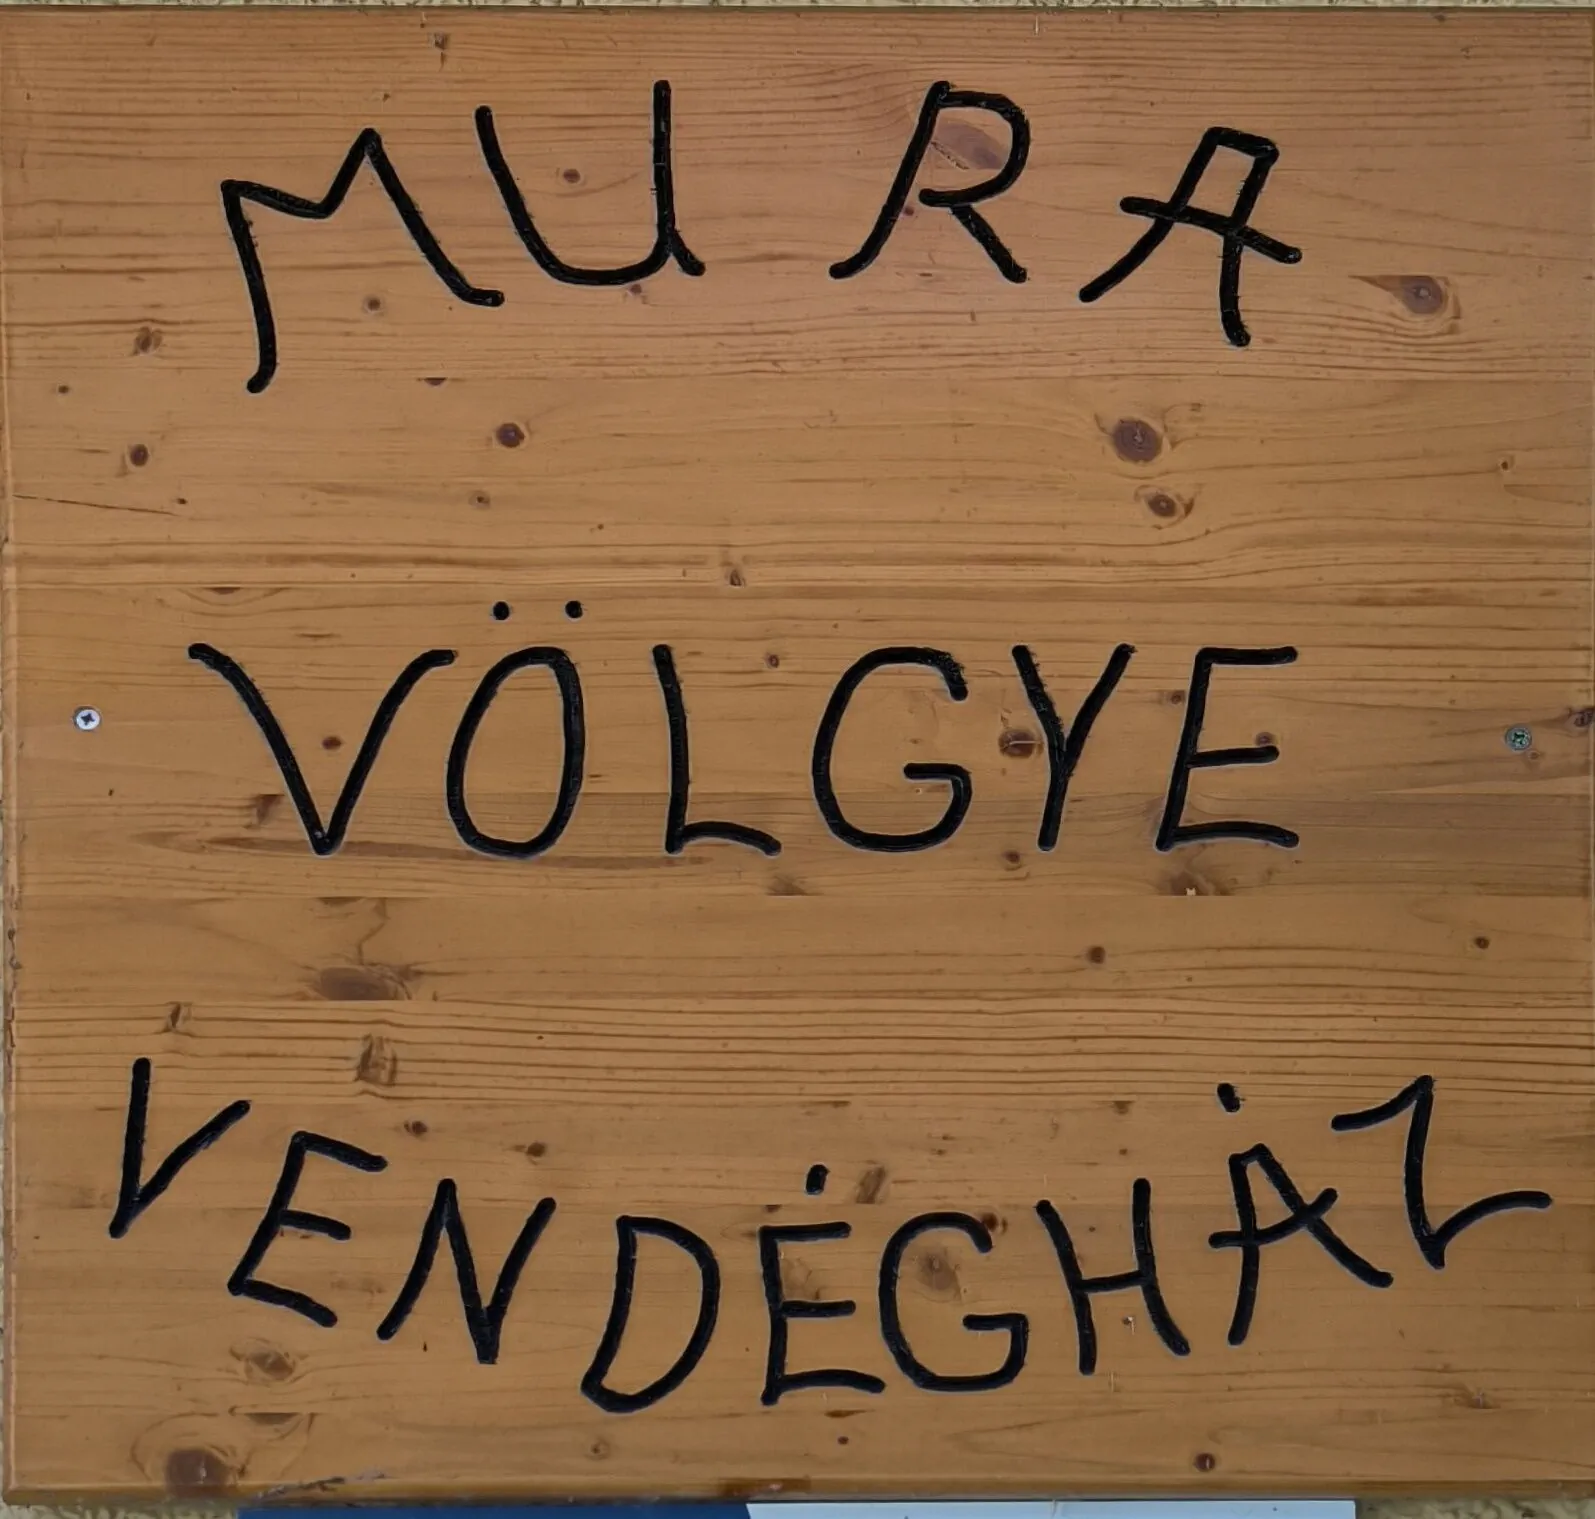 MURA
VÖLGYE
VENDÉGHÁZ